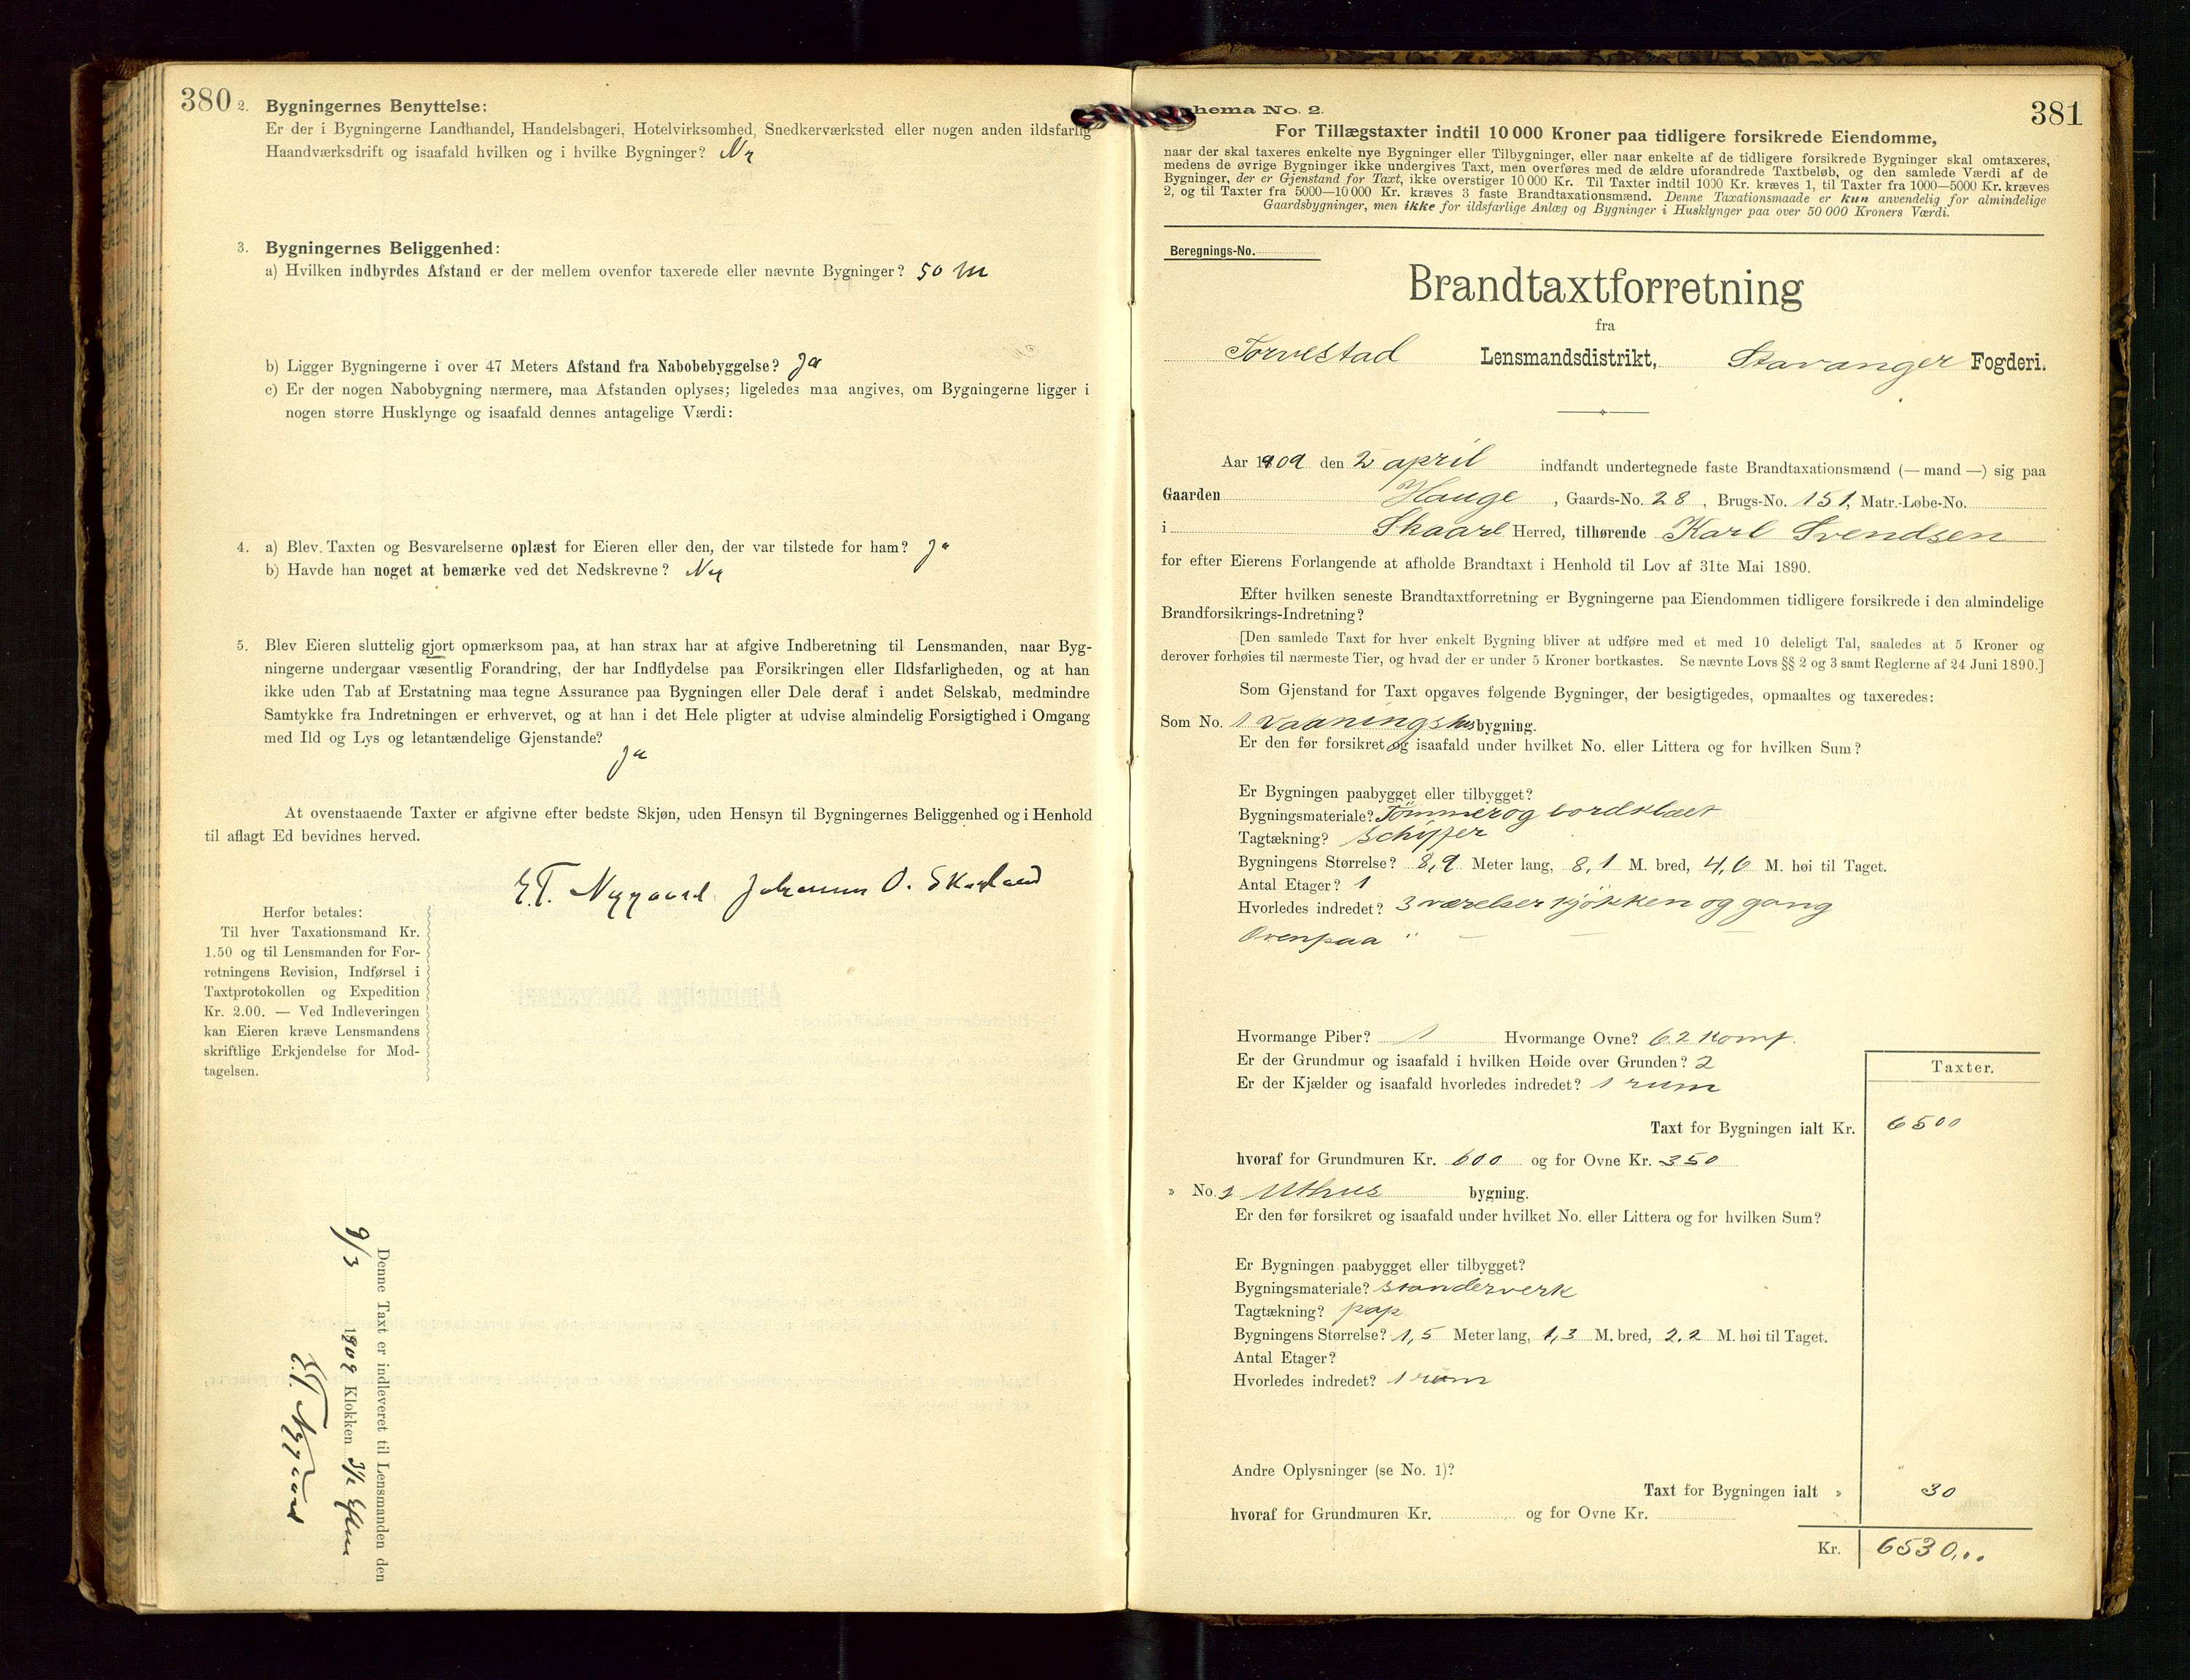 380
2. Bygningernes Benyttelse:
Er der i Bygningerne Landhandel, Handelsbageri, Hotelvirksomhed, Snedkerværksted eller nogen anden ildsfarlig
Haandværksdrift og isaafald hvilken og i hvilke Bygninger?
3. Bygningernes Beliggenhed:
a) Hvilken indbyrdes Afstand er der mellem ovenfor taxerede eller nævnte Bygninger? 50 m
b) Ligger Bygningerne i over 47 Meters Afstand fra Nabobebyggelse? Ja
c) Er der nogen Nabobygning nærmere, maa Afstanden oplyses; ligeledes maa angives, om Bygningerne ligger i
nogen større Husklynge og isaafald dennes antagelige Værdi:
4. a) Blev Taxten og Besvarelserne oplæst for Eieren eller den, der var tilstede for ham? Ja
b) Havde han noget at bemærke ved det Nedskrevne? Nei
5. Blev Eieren sluttelig gjort opmærksom paa, at han strax har at afgive Indberetning til Lensmanden, naar Byg-
ningerne undergaar væsentlig Forandring, der har Indflydelse paa Forsikringen eller Ildsfarligheden, og at han
ikke uden Tab af Erstatning maa tegne Assurance paa Bygningen eller Dele deraf i andet Selskab, medmindre
Samtykke fra Indretningen er erhvervet, og at han i det Hele pligter at udvise almindelig Forsigtighed i Omgang
med Ild og Lys og letantændelige Gjenstande?
Ja
At ovenstaaende Taxter er afgivne efter bedste Skjøn, uden Hensyn til Bygningernes Beliggenhed og i Henhold
til aflagt Ed bevidnes herved.
E.T. Nygaard. Johannes O. Skagland
Herfor betales:
Til hver Taxationsmand Kr.
1.50 og til Lensmanden for For-
retningens Revision, Indførsel i
Taxtprotokollen og Expedition
Kr. 2.00. — Ved Indleveringen
kan Eieren kræve Lensmandens
skriftlige Erkjendelse for Mod-
tagelsen.
Denne Taxt er indleveret til Lensmanden den
9/3 1909 Klokken 3½ Efterm
E.T. Nygaard
381
hema No. 2.
For Tillægstaxter indtil 10 000 Kroner paa tidligere forsikrede Eiendomme,
naar der skal taxeres enkelte nye Bygninger eller Tilbygninger, eller naar enkelte af de tidligere forsikrede Bygninger skal omtaxeres,
medens de øvrige Bygninger ikke undergives Taxt, men overføres med de ældre uforandrede Taxtbeløb, og den samlede Værdi af de
Bygninger, der er Gjenstand for Taxt, ikke overstiger 10 000 Kr. Til Taxter indtil 1000 Kr. kræves 1, til Taxter fra 1000—5000 Kr. kræves
2, og til Taxter fra 5000—10 000 Kr. kræves 3 faste Brandtaxationsmænd. Denne Taxationsmaade er kun anvendelig for almindelige
Gaardsbygninger, men ikke for ildsfarlige Anlæg og Bygninger i Husklynger paa over 50 000 Kroners Værdi.
Beregnings-No.
Brandtaxtforretning
fra
Torvestad Lensmandsdistrikt, Stavanger Fogderi.
Aar 1909 den 2 april indfandt undertegnede faste Brandtaxationsmænd (— mand —) sig paa
Gaarden Hauge, Gaards-No. 28, Brugs-No. 151, Matr.-Løbe-No.
i Skaare Herred, tilhørende Karl Svendsen
for efter Eierens Forlangende at afholde Brandtaxt i Henhold til Lov af 31te Mai 1890.
Efter hvilken seneste Brandtaxtforretning er Bygningerne paa Eiendommen tidligere forsikrede i den almindelige
Brandforsikrings-Indretning?
[Den samlede Taxt for hver enkelt Bygning bliver at udføre med et med 10 deleligt Tal, saaledes at 5 Kroner og
derover forhøies til nærmeste Tier, og hvad der er under 5 Kroner bortkastes. Se nævnte Lovs §§ 2 og 3 samt Reglerne af 24 Juni 1890.]
Som Gjenstand for Taxt opgaves følgende Bygninger, der besigtigedes, opmaaltes og taxeredes:
Som No. 1 Vaaningshusbygning.
Er den før forsikret og isaafald under hvilket No. eller Littera og for hvilken Sum?
Er Bygningen paabygget eller tilbygget?
Bygningsmateriale? Tømmer og bordklæt
Tagtækning? Schiffer
Bygningens Størrelse? 8,9 Meter lang, 8,1 M. bred, 4,6 M. høi til Taget.
Antal Etager? 1
Hvorledes indredet? 3 værelser kjøkken og gang
Ovenpaa " — — —
Hvormange Piber? 1 Hvormange Ovne? 6 2 komf.
Er der Grundmur og isaafald i hvilken Høide over Grunden? 2
Er der Kjælder og isaafald hvorledes indredet? 1 rum
Taxter.
Taxt for Bygningen ialt Kr. 6500
hvoraf for Grundmuren Kr. 600 og for Ovne Kr. 350
» No. 2 Uthus bygning.
Er den før forsikret og isaafald under hvilket No. eller Littera og for hvilken Sum?
Er Bygningen paabygget eller tilbygget?
Bygningsmateriale? standerverk
Tagtækning? pap
Bygningens Størrelse? 1,5 Meter lang, 1,3 M. bred, 2,2 M. høi til Taget.
Antal Etager?
Hvorledes indredet? 1 rum
Andre Oplysninger (se No. 1)?
Taxt for Bygningen ialt » 30
hvoraf for Grundmuren Kr. og for Ovne Kr.
Kr. 6530,..